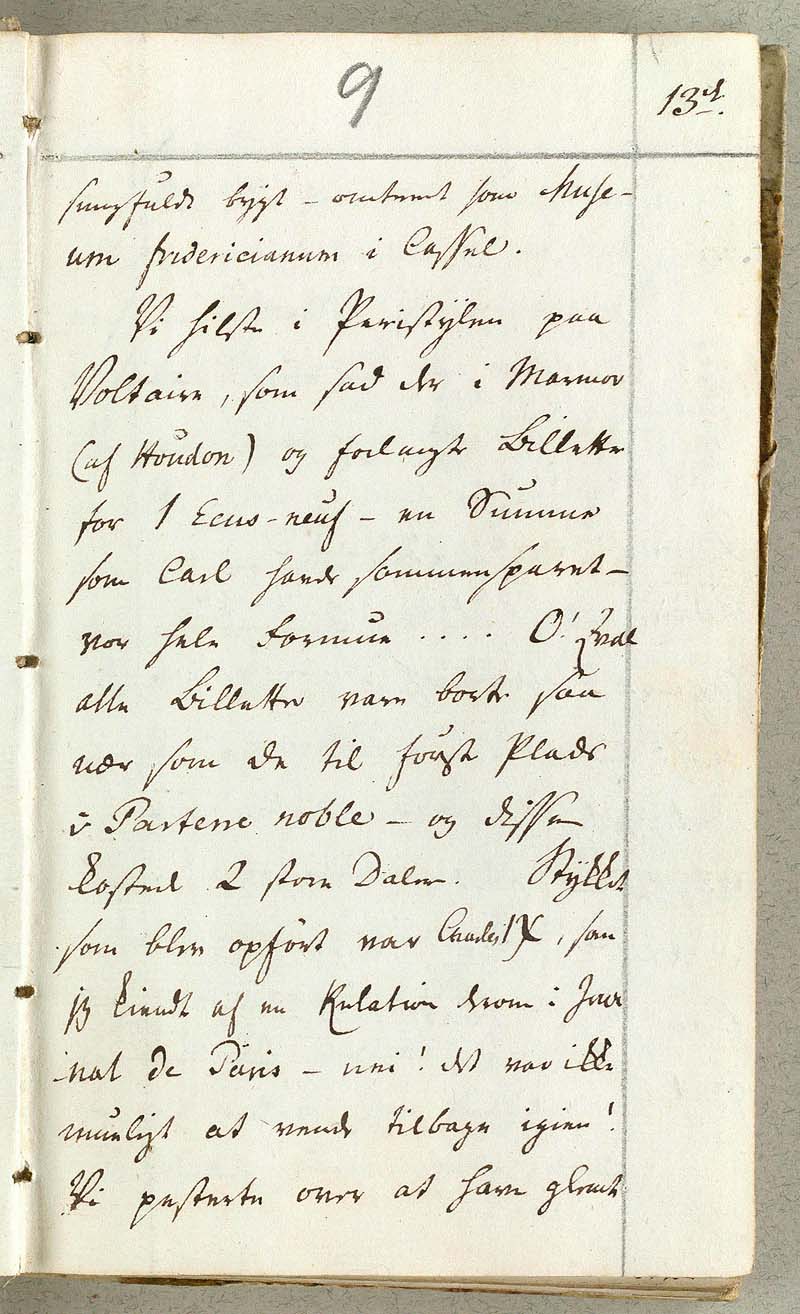 9
13d.
smagfuldt bygt – omtrent som Muse-
um fridericianum i Cassel.
Vi hilste i Peristylen paa
Voltaire, som sad der i Marmor
(af Houdon) og forlangte Billetter
for 1 Ecus-neuf – en Summe
som Carl havde sammensparet –
vor hele Formue .... O! Qval
alle Billetter vare borte saa
nær som de til förste Plads
i Parterre noble – og disse
kosted 2 store Daler. Stykket
som blev opfört var Charles IX, som
jeg kiendt af en Relation derom i Jour
nal de Paris – nei! det var ikke
mueligt at vende tilbage igien!
Vi pesterte over at have glemt